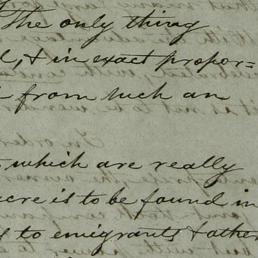 The only thing
l, & in exact propor=
from such an
which are really
acre is to be found in
to emigrants & other